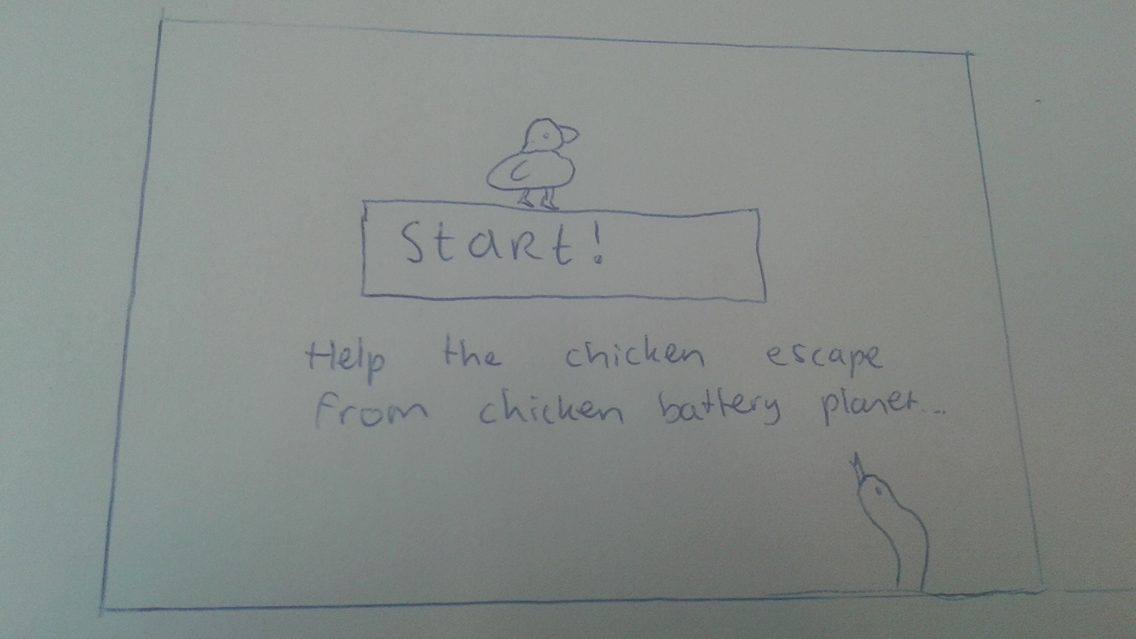 Start!
Help the chicken escape
from chicken battery planet...